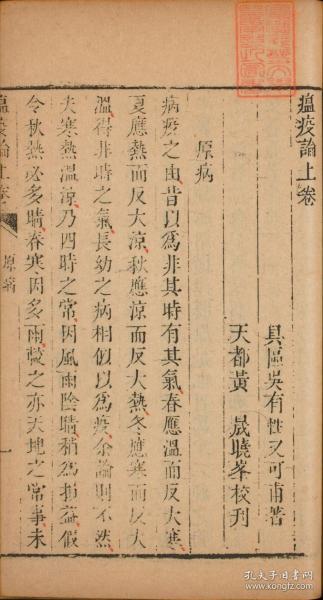 瘟疫論上卷
具區吳有性又可甫著
天都黃晟曉峯校刊
原病
病疫之由昔以為非其時有其氣春應溫而反大寒
夏應熱而反大涼秋應涼而反大熱冬應寒而反大
溫得非時之氣長幼之病相似以為疫余論則不然
夫寒熱溫涼乃四時之常因風雨陰晴稍為損益假
令秋熱必多晴春寒因多雨較之亦天地之常事未
瘟疫論上卷
原病
一
孔夫子旧书网